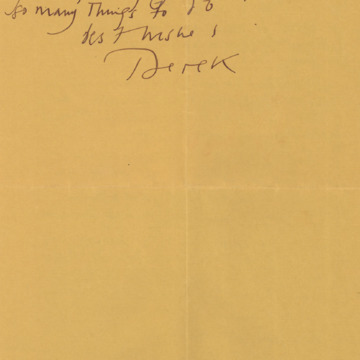 so many Things to do
best wishes
Derek